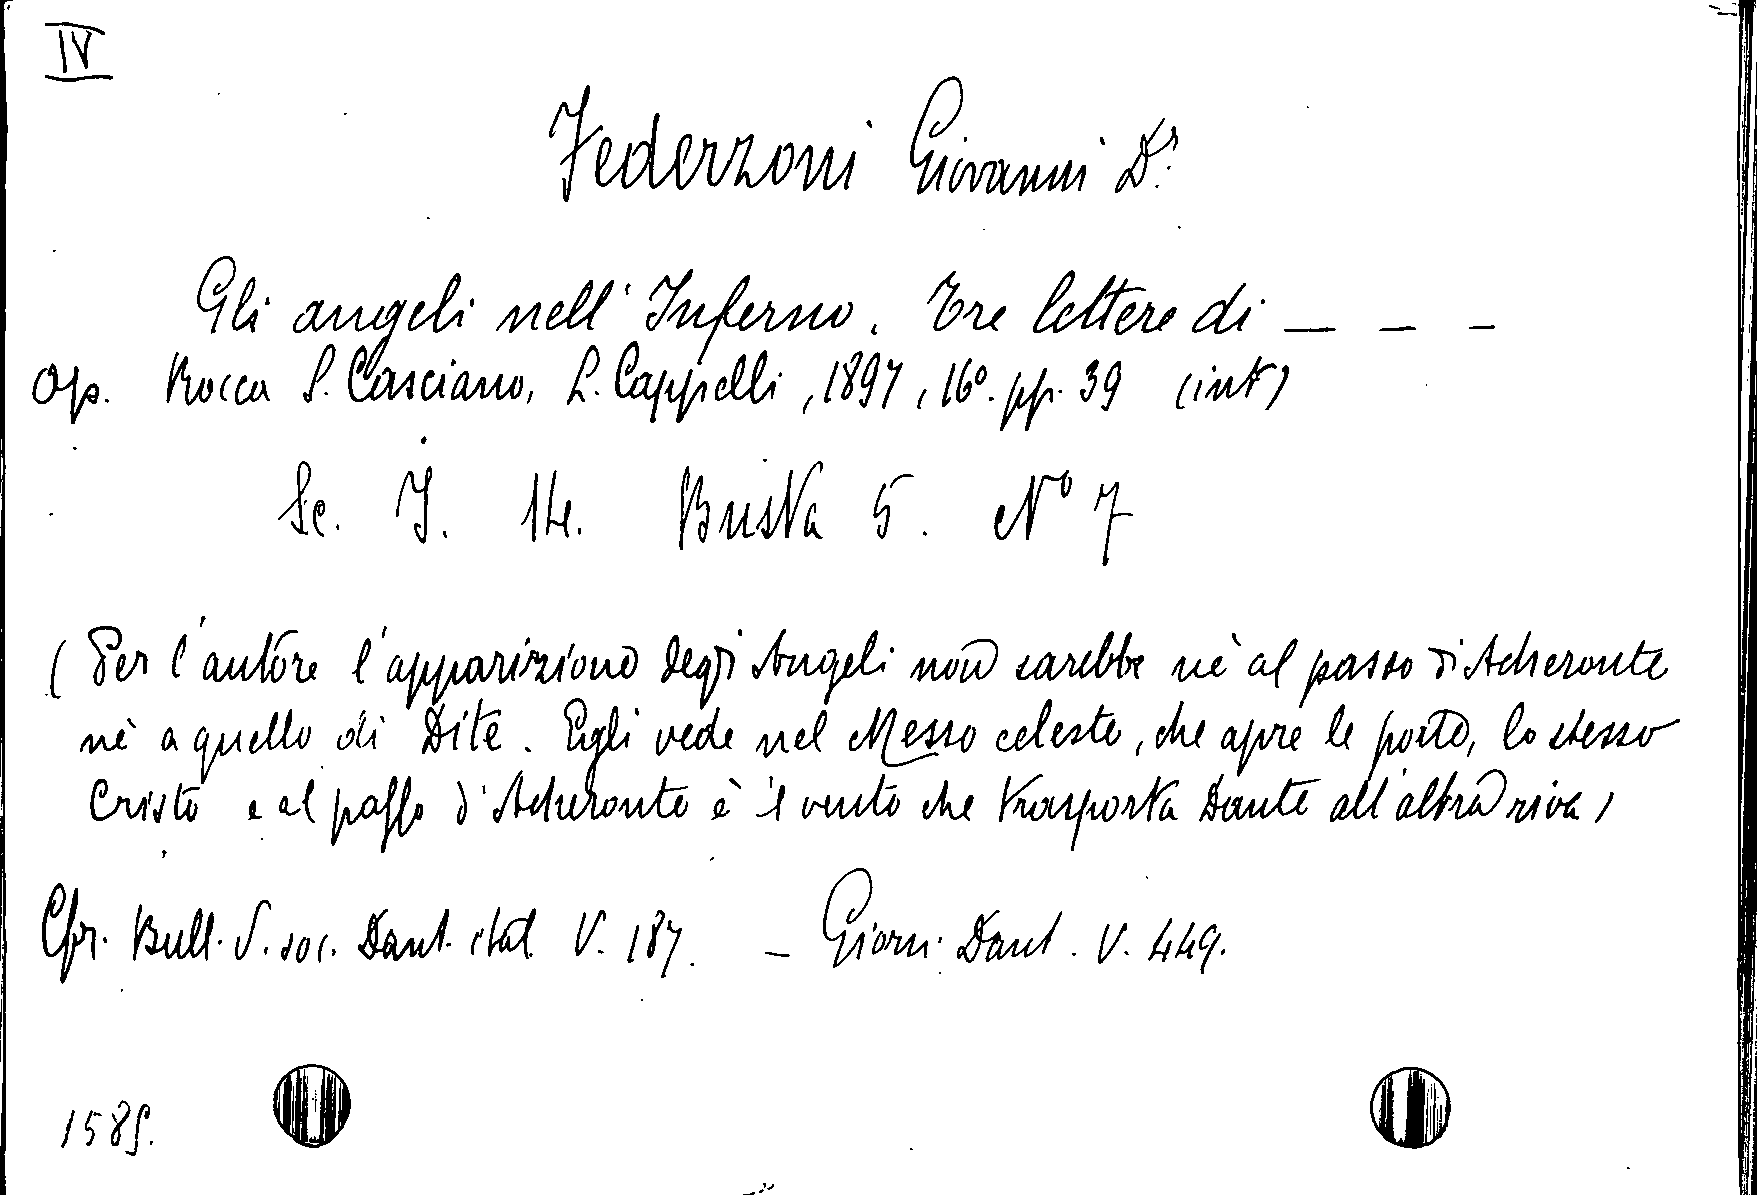 IV
Federzoni Giovanni Dr.
Gli angeli nell'Inferno. Tre lettere di — — —
Op. Rocca S. Casciano, L. Cappelli, 1897, 16º. pp. 39 (int)
Sc. I. 14. Busta 5. Nº 7
(Per l'autore l'apparizione degli Angeli non sarebbe nè al passo di Acheronte
nè a quello di Dite. Egli vede nel Messo celeste, che apre le porte, lo stesso
Cristo e al passo d'Acheronte è il vento che trasporta Dante all'altra riva)
Cfr. Bull. S. soc. Dant. ital. V. 187. — Giorn. Dant. V. 449.